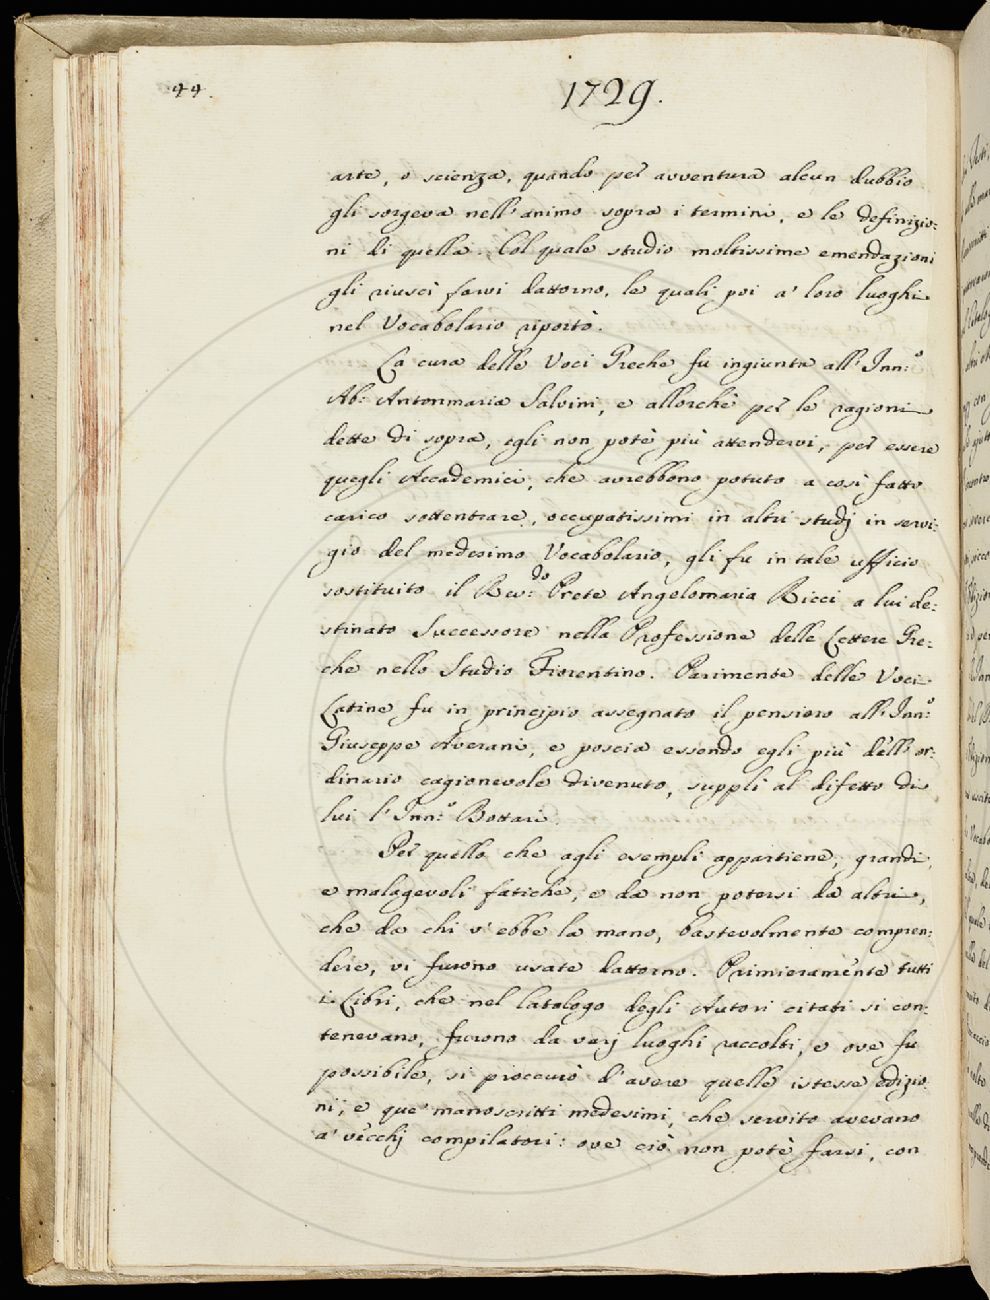 44.
1729.
arte, o scienza, quando per avventura alcun dubbio
gli sorgeva nell'animo sopra i termini, e le definizio:
ni di quella. Col quale studio moltissime emendazioni
gli riuscì farvi dattorno, le quali poi a' loro luoghi
nel Vocabolario riportò.
La cura delle Voci Greche fu ingiunta all'Inn:º
Ab: Antonmaria Salvini, e allorchè per le ragioni
dette di sopra, egli non potè più attendervi, per essere
quegli Accademici, che avrebbono potuto a così fatto
carico sottentrare, occupatissimi in altri studj in servi:
gio del medesimo Vocabolario, gli fu in tale ufficio
sostituito il Rev:do Prete Angelomaria Ricci a lui de:
stinato Successore nella Professione delle Lettere Gre:
che nello Studio Fiorentino. Parimente delle Voci
Latine fu in principio assegnato il pensiero all'Inn:º
Giuseppe Averani, e poscia essendo egli più dell'or:
dinario cagionevole divenuto, supplì al difetto di
lui l'Inn:º Bottari.
Per quello che agli esempli appartiene, grandi,
e malagevoli fatiche, e da non potersi da altri,
che da chi v'ebbe la mano, bastevolmente compren:
dere, vi furono usate dattorno. Primieramente tutti
i Libri, che nel Catalogo degli Autori citati si con:
tenevano, furono da varj luoghi raccolti, e ove fu
possibile, si proccurò d'avere quelle istesse edizio:
ni, e que' manoscritti medesimi, che servito avevano
a' vecchj compilatori: ove ciò non potè farsi, con